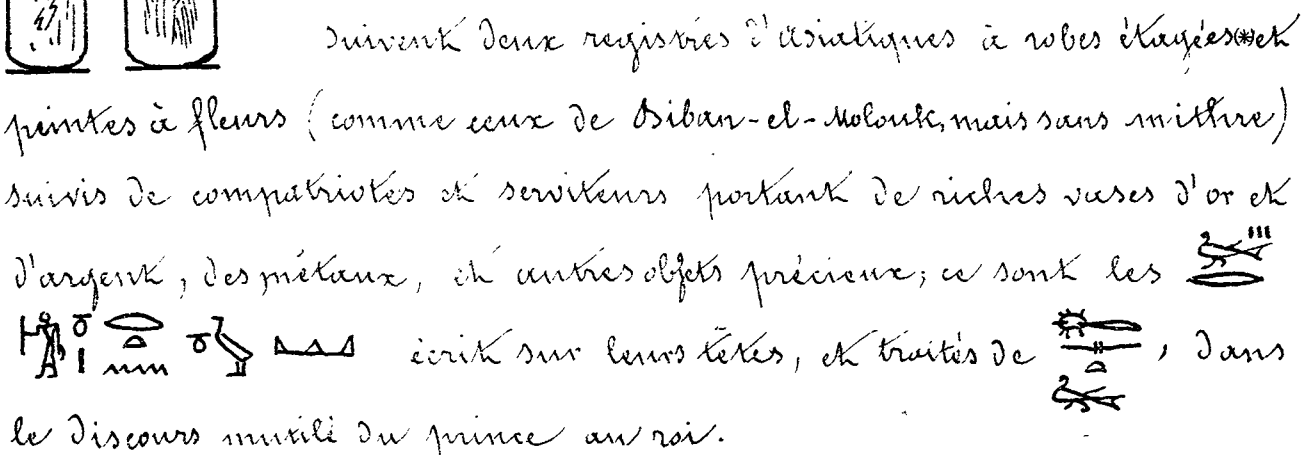 suivent deux registres d'asiatiques à robes étagées(*)et
peintes à fleurs (comme ceux de Biban-el-Molouk, mais sans mithre)
suivis de compatriotes et serviteurs portant de riches vases d'or et
d'argent, des métaux, et autres objets précieux; ce sont les
écrit sur leurs têtes, et traités de , dans
le discours mutilé du prince au roi.